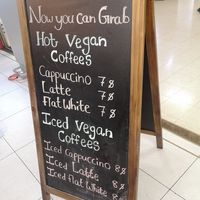 Now you can Grab
Hot Vegan
Coffees
Cappuccino 7$
Latte 7$
Flat White 7$
Iced Vegan
Coffees
Iced Cappuccino 8$
Iced Latte 8$
Iced Flat White 8$